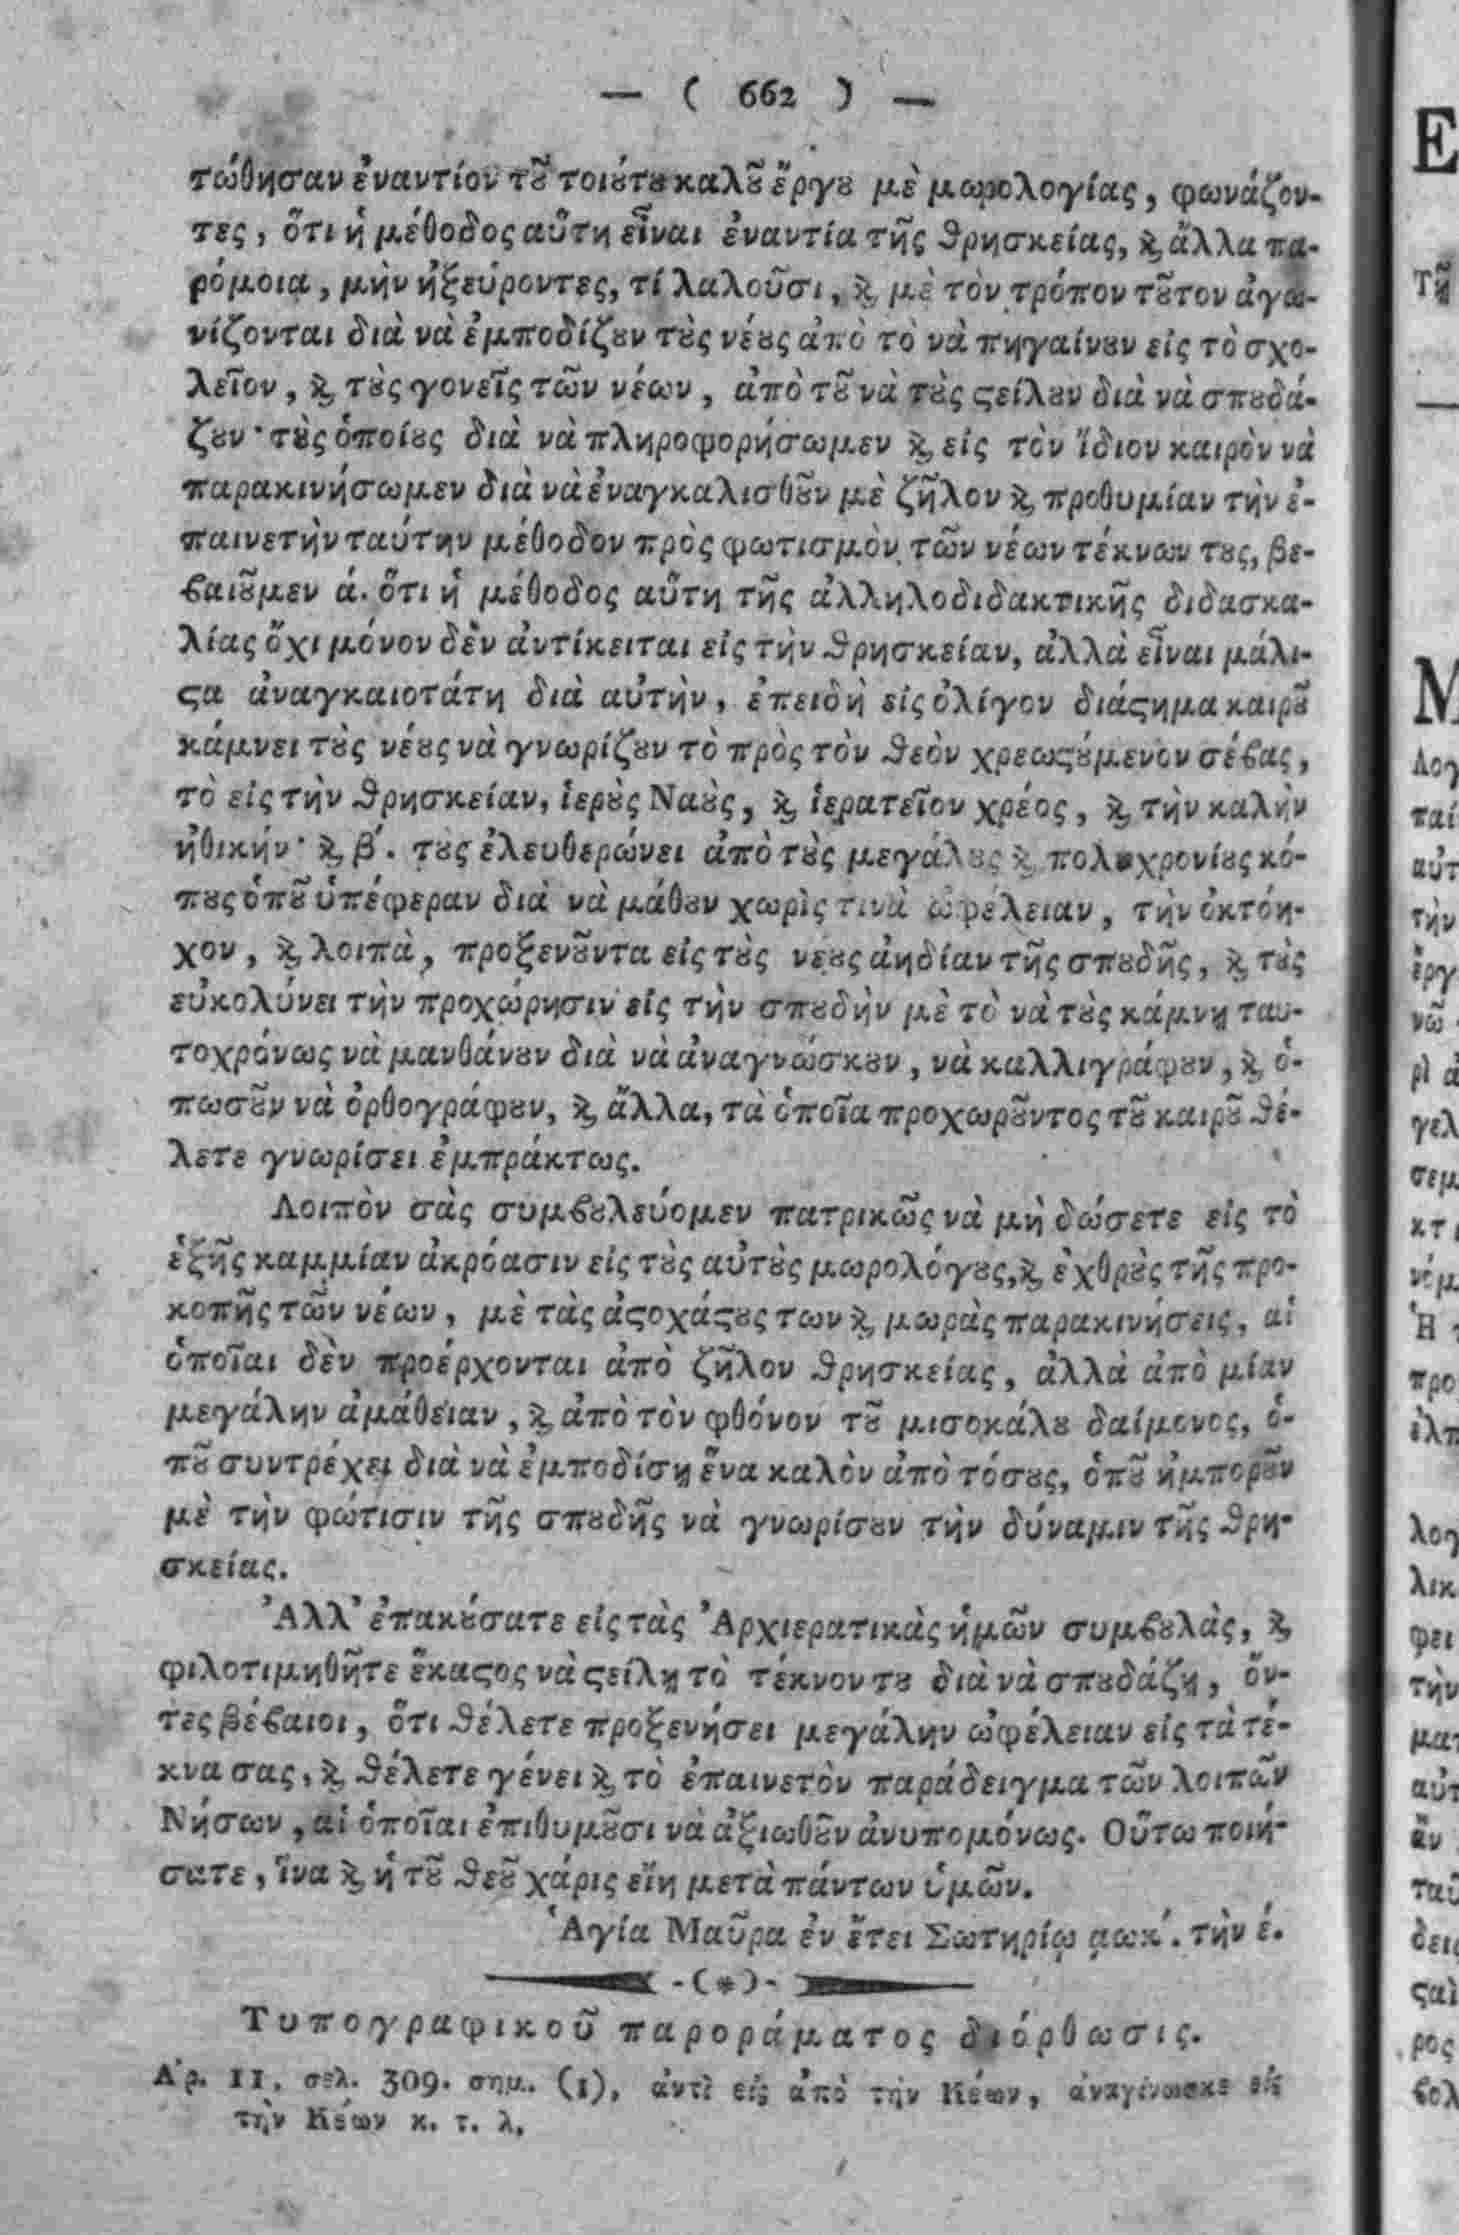 — ( 662 ) —
τώθησαν ἐναντίον τȣ͂ τοιȣ́τȣ καλȣ͂ ἔργȣ μὲ μωρολογίας, φωνάζον-
τες, ὅτι ἡ μέθοδος αὕτη εἶναι ἐναντία τῆς ϑρησκείας, ϗ ἄλλα πα-
ρόμοια, μὴν ἠξεύροντες, τί λαλοῦσι, ϗ μὲ τὸν τρόπον τȣ͂τον ἀγω-
νίζονται διὰ νὰ ἐμποδίζȣν τȣ̀ς νέȣς ἀπὸ τὸ νὰ πηγαίνȣν εἰς τὸ σχο-
λεῖον, ϗ τȣ̀ς γονεῖς τῶν νέων, ἀπὸ τȣ͂ νὰ τȣ̀ς ϛείλȣν διὰ νὰ σπȣδά-
ζȣν· τȣ̀ς ὁποίȣς διὰ νὰ πληροφορήσωμεν ϗ εἰς τὸν ἴδιον καιρὸν νὰ
παρακινήσωμεν διὰ νὰ ἐναγκαλισθȣ͂ν μὲ ζῆλον ϗ προθυμίαν τὴν ἐ-
παινετὴν ταύτην μέθοδον πρὸς φωτισμὸν τῶν νέων τέκνων τȣς, βε-
ϐαιȣ͂μεν ά. ὅτι ἡ μέθοδος αὕτη τῆς ἀλληλοδιδακτικῆς διδασκα-
λίας ὄχι μόνον δὲν ἀντίκειται εἰς τὴν ϑρησκείαν, ἀλλὰ εἶναι μάλι-
ϛα ἀναγκαιοτάτη διὰ αὐτὴν, ἐπειδὴ εἰς ὀλίγον διάϛημα καιρȣ͂
κάμνει τȣ̀ς νέȣς νὰ γνωρίζȣν τὸ πρὸς τὸν ϑεὸν χρεωϛȣ́μενον σέϐας,
τὸ εἰς τὴν ϑρησκείαν, ἱερȣ̀ς Ναȣ̀ς, ϗ ἱερατεῖον χρέος, ϗ τὴν καλὴν
ἠθικήν· ϗ β΄. τȣς ἐλευθερώνει ἀπὸ τȣ̀ς μεγάλȣς ϗ πολυχρονίȣς κό-
πȣς ὁπȣ͂ ὑπέφεραν διὰ νὰ μάθȣν χωρὶς τινὰ ὠφέλειαν, τὴν ὀκτόη-
χον, ϗ λοιπὰ, προξενȣ͂ντα εἰς τȣ̀ς νεȣς ἀηδίαν τῆς σπȣδῆς, ϗ τȣ̀ς
εὐκολύνει τὴν προχώρησιν εἰς τὴν σπȣδὴν μὲ τὸ νὰ τȣ̀ς κάμνῃ ταυ-
τοχρόνως νὰ μανθάνȣν διὰ νὰ ἀναγνώσκȣν, νὰ καλλιγράφȣν, ϗ ὁ-
πωσȣ͂ν νὰ ὀρθογράφȣν, ϗ ἄλλα, τὰ ὁποῖα προχωρȣ͂ντος τȣ͂ καιρȣ͂ ϑέ-
λετε γνωρίσει ἐμπράκτως.
Λοιπὸν σὰς συμϐȣλεύομεν πατρικῶς νὰ μὴ δώσετε εἰς τὸ
ἑξῆς καμμίαν ἀκρόασιν εἰς τȣ̀ς αὐτȣ̀ς μωρολόγȣς, ϗ ἐχθρȣ̀ς τῆς προ-
κοπῆς τῶν νέων, μὲ τὰς ἀϛοχάϛȣς των ϗ μωρὰς παρακινήσεις, αἱ
ὁποῖαι δὲν προέρχονται ἀπὸ ζῆλον ϑρησκείας, ἀλλὰ ἀπὸ μίαν
μεγάλην ἀμάθειαν, ϗ ἀπὸ τὸν φθόνον τȣ͂ μισοκάλȣ δαίμονος, ὁ-
πȣ͂ συντρέχει διὰ νὰ ἐμποδίσῃ ἕνα καλὸν ἀπὸ τόσȣς, ὁπȣ͂ ἠμπορȣ͂ν
μὲ τὴν φώτισιν τῆς σπȣδῆς νὰ γνωρίσȣν τὴν δύναμιν τῆς ϑρη-
σκείας.
Ἀλλ' ἐπακȣ́σατε εἰς τὰς Ἀρχιερατικὰς ἡμῶν συμϐȣλὰς, ϗ
φιλοτιμηθῆτε ἕκαϛος νὰ ϛείλῃ τὸ τέκνον τȣ διὰ νὰ σπȣδάζῃ, ὄν-
τες βέϐαιοι, ὅτι ϑέλετε προξενήσει μεγάλην ὠφέλειαν εἰς τὰ τέ-
κνα σας, ϗ ϑέλετε γένει ϗ τὸ ἐπαινετὸν παράδειγμα τῶν λοιπῶν
Νήσων, αἱ ὁποῖαι ἐπιθυμȣ͂σι νὰ ἀξιωθȣ͂ν ἀνυπομόνως. Οὕτω ποιή-
σατε, ἵνα ϗ ἡ τȣ͂ ϑεȣ͂ χάρις εἴη μετὰ πάντων ὑμῶν.
Ἁγία Μαῦρα ἐν ἔτει Σωτηρίῳ ͵αωκ΄. τὴν έ.
-(*)-
Τυπογραφικοῦ παροράματος διόρθωσις.
Ἀρ. 11, σελ. 309. σημ. (1), ἀντὶ εἰς ἀπὸ τὴν Κέων, ἀναγίνωσκε εἰς
τὴν Κέων κ. τ. λ.